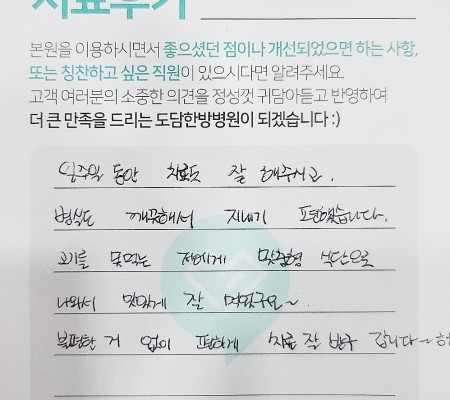 치료후기
본원을 이용하시면서 좋으셨던 점이나 개선되었으면 하는 사항,
또는 칭찬하고 싶은 직원이 있으시다면 알려주세요.
고객 여러분의 소중한 의견을 정성껏 귀담아듣고 반영하여
더 큰 만족을 드리는 도담한방병원이 되겠습니다 :)
일주일 동안 치료도 잘 해주시고,
병실도 깨끗해서 지내기 편했습니다.
고기를 못먹는 저에게 맞춤형 식단으로
나와서 맛있게 잘 먹었구요~
불편한 거 없이 편하게 치료 잘 받구 갑니다~